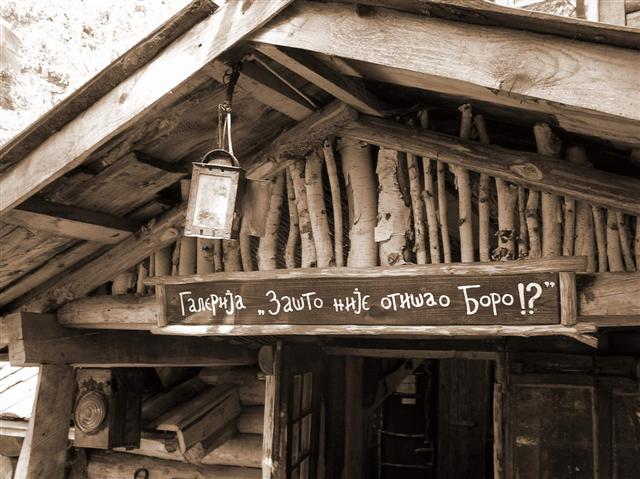 Галерија „Зашто није отишао Боро!?”